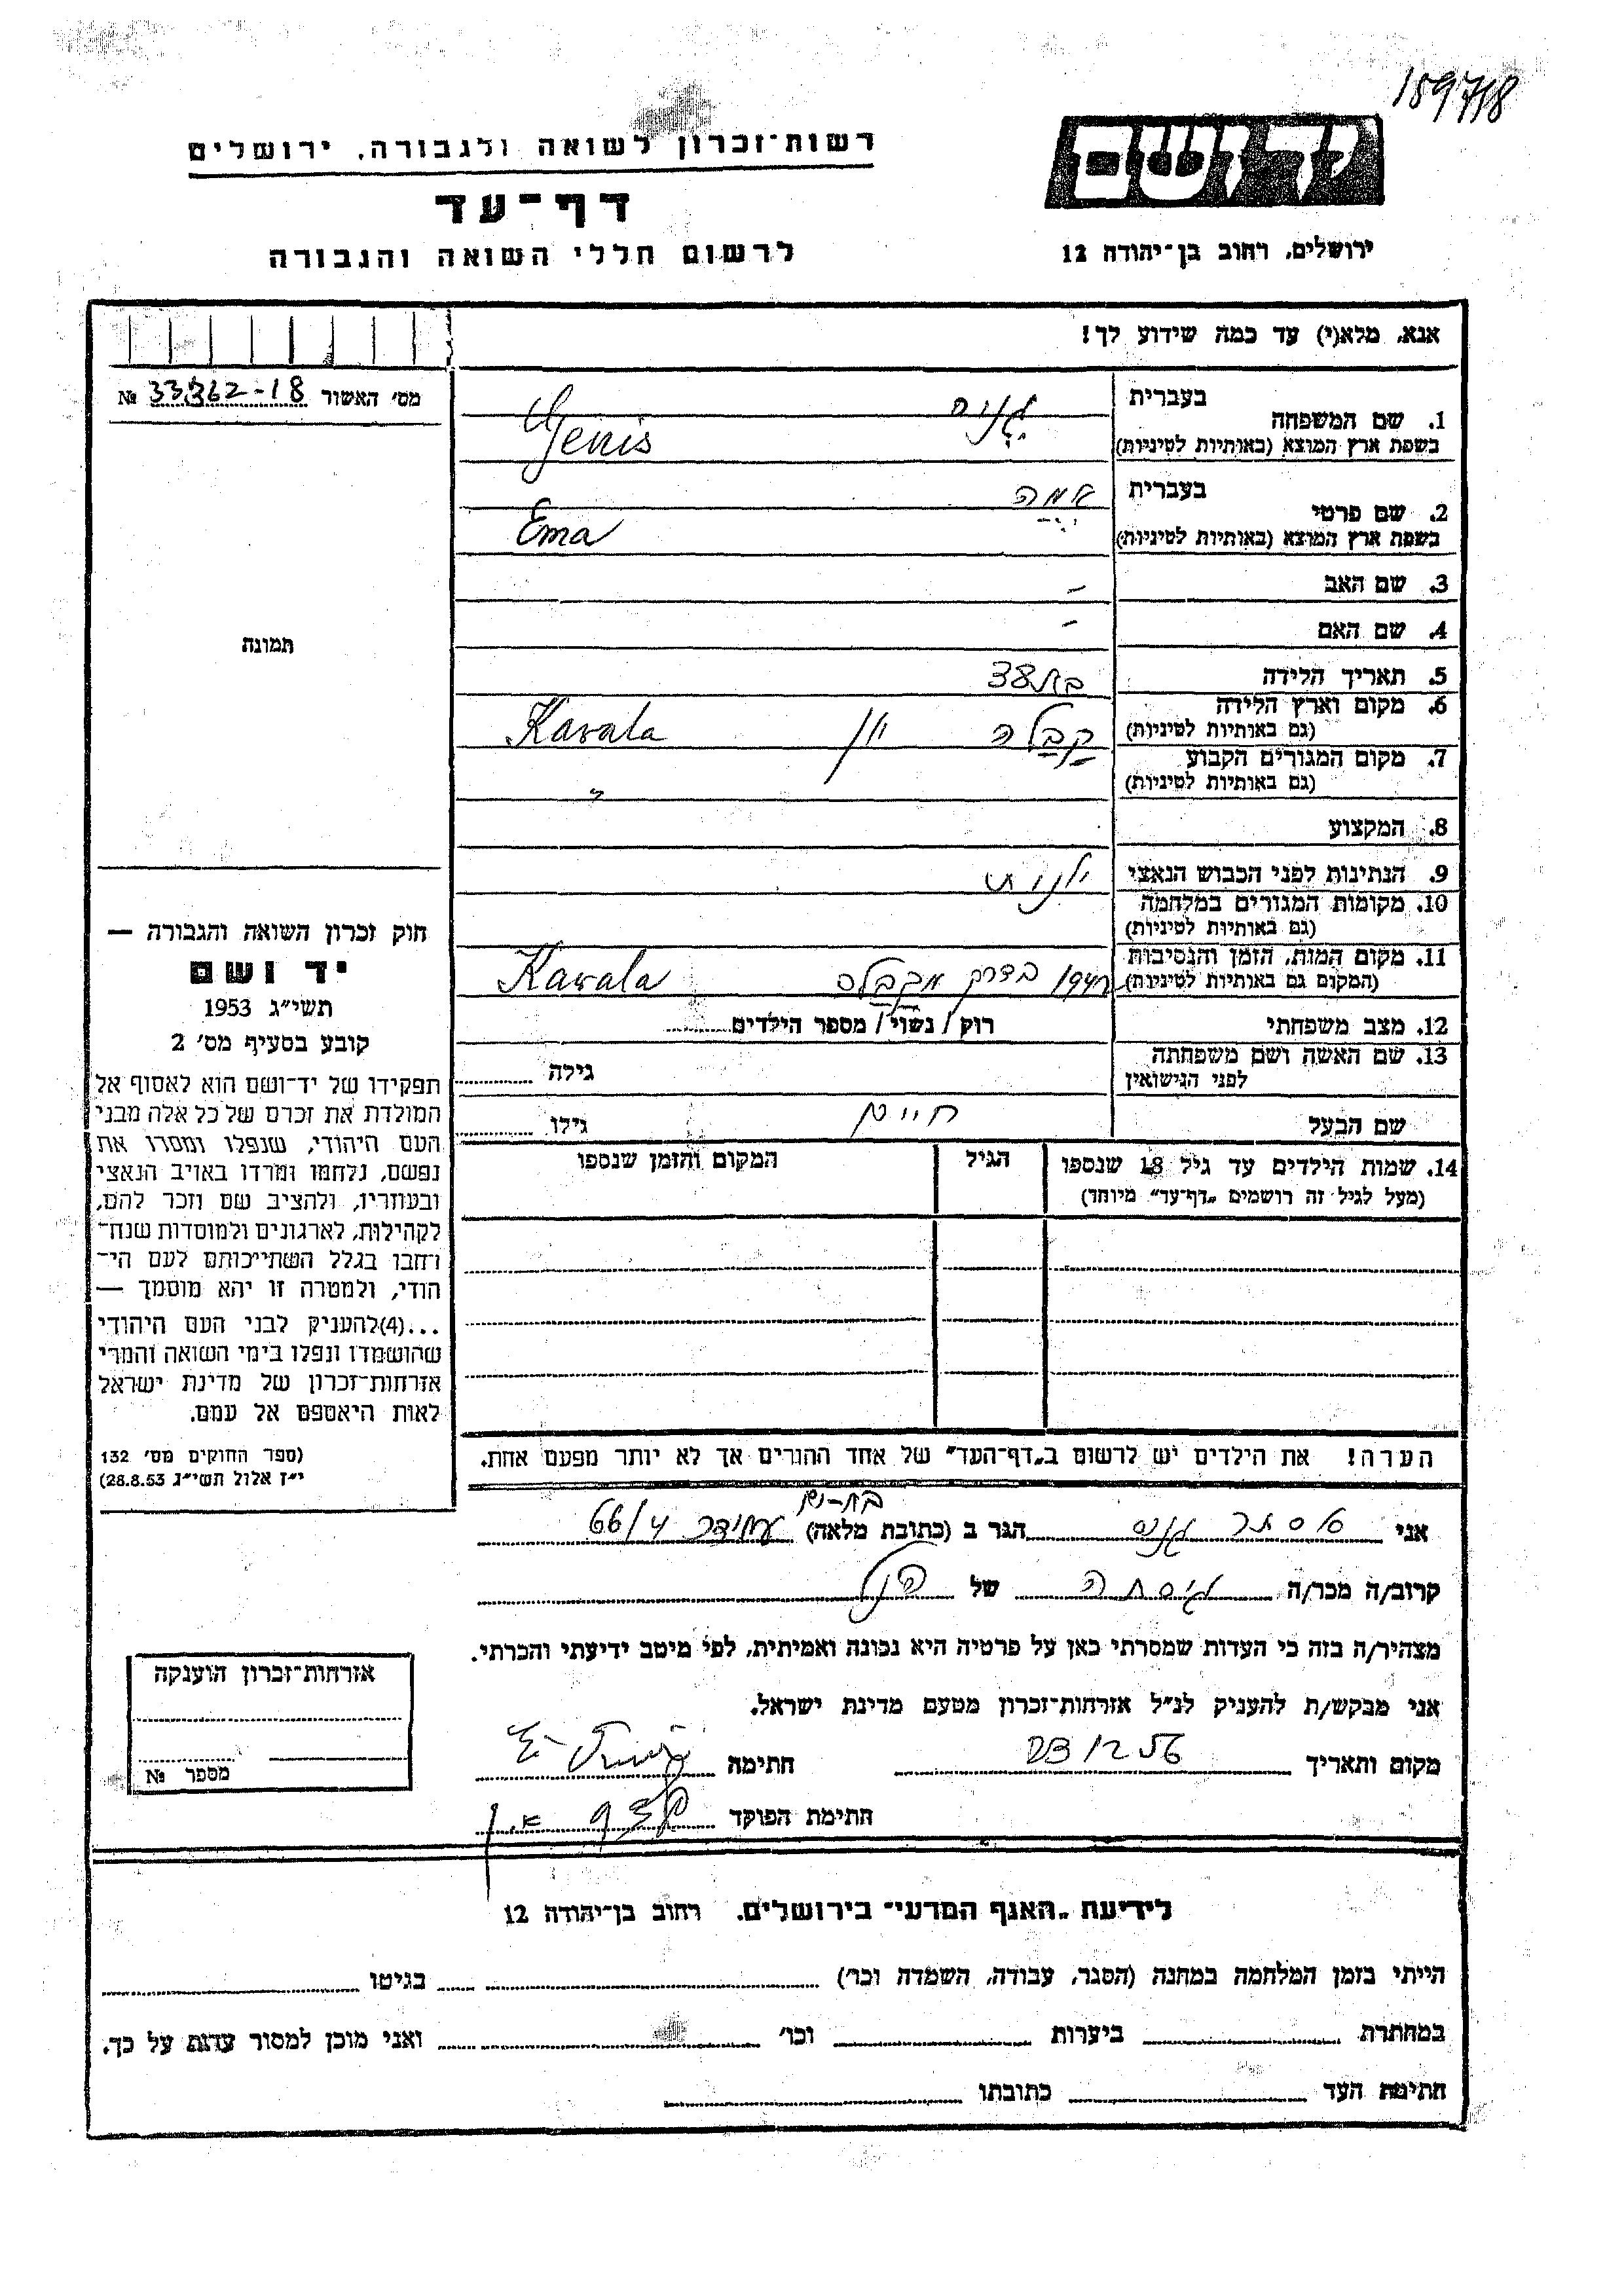 159718
רשות־זכרון לשואה ולגבורה, ירושלים
יד ושם
דף־עד
לרשום חללי השואה והגבורה
ירושלים, רחוב בן־יהודה 12
אנא, מלא(י) עד כמה שידוע לך!
מס׳ האשור № 33362-18
1. שם המשפחה
בעברית
בשפת ארץ המוצא (באותיות לטיניות) Yenis
2. שם פרטי
בעברית אמה
בשפת ארץ המוצא (באותיות לטיניות) Ema
3. שם האב –
4. שם האם –
תמונה
5. תאריך הלידה בת 38
6. מקום וארץ הלידה
(גם באותיות לטיניות) קבלה יון Kavala
7. מקום המגורים הקבוע
(גם באותיות לטיניות) "
8. המקצוע
9. הנתינות לפני הכבוש הנאצי יונית
10. מקומות המגורים במלחמה
(גם באותיות לטיניות)
11. מקום המות, הזמן והנסיבות
(המקום גם באותיות לטיניות) בדרך מקבלה Kavala
12. מצב משפחתי רוק / נשוי / מספר הילדים
13. שם האשה ושם משפחתה
לפני הנישואין גילה
שם הבעל חיים גילו
14. שמות הילדים עד גיל 18 שנספו הגיל המקום והזמן שנספו
(מעל לגיל זה רושמים „דף־עד״ מיוחד)
חוק זכרון השואה והגבורה —
יד ושם
תשי״ג 1953
קובע בסעיף מס׳ 2
תפקידו של יד־ושם הוא לאסוף אל
המולדת את זכרם של כל אלה מבני
העם היהודי, שנפלו ומסרו את
נפשם, נלחמו ומרדו באויב הנאצי
ובעוזריו, ולהציב שם וזכר להם,
לקהילות, לארגונים ולמוסדות שנח־
רחבו בגלל השתייכותם לעם הי־
הודי, ולמטרה זו יהא מוסמך —
...(4)להעניק לבני העם היהודי
שהושמדו ונפלו בימי השואה והמרי
אזרחות־זכרון של מדינת ישראל
לאות היאספם אל עמם.
(ספר החוקים מס׳ 132
י״ז אלול תשי״ג 28.8.53)
הערה! את הילדים יש לרשום ב„דף־העד״ של אחד ההורים אך לא יותר מפעם אחת.
בת-ים
אני אסתר הגר ב (כתובת מלאה) עמידר 66/4
קרוב/ה מכר/ה גיסתה של הנ"ל
מצהיר/ה בזה כי העדות שמסרתי כאן על פרטיה היא נכונה ואמיתית, לפי מיטב ידיעתי והכרתי.
אני מבקש/ת להעניק לנ״ל אזרחות־זכרון מטעם מדינת ישראל.
מקום ותאריך 23/12 56 חתימה
חתימת הפוקד
אזרחות־זכרון הוענקה
מספר №
לידיעת „האגף המדעי״ בירושלים. רחוב בן־יהודה 12
הייתי בזמן המלחמה במחנה (הסגר, עבודה, השמדה וכו׳) בגיטו
במחתרת ביערות וכו׳ ואני מוכן למסור עדות על כך.
חתימת העד כתובתו